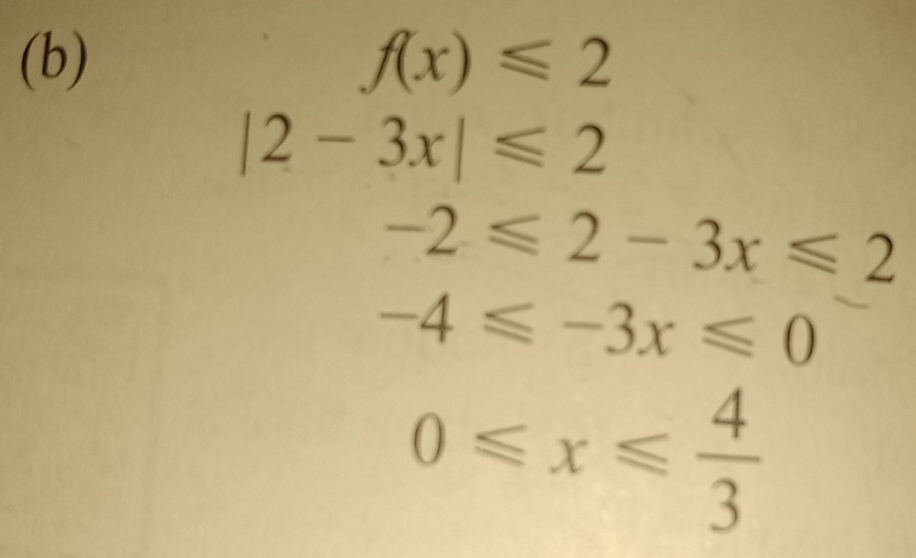 (b) f(x) ⩽ 2
|2 − 3x| ⩽ 2
−2 ⩽ 2 − 3x ⩽ 2
−4 ⩽ −3x ⩽ 0
0 ⩽ x ⩽ 4/3